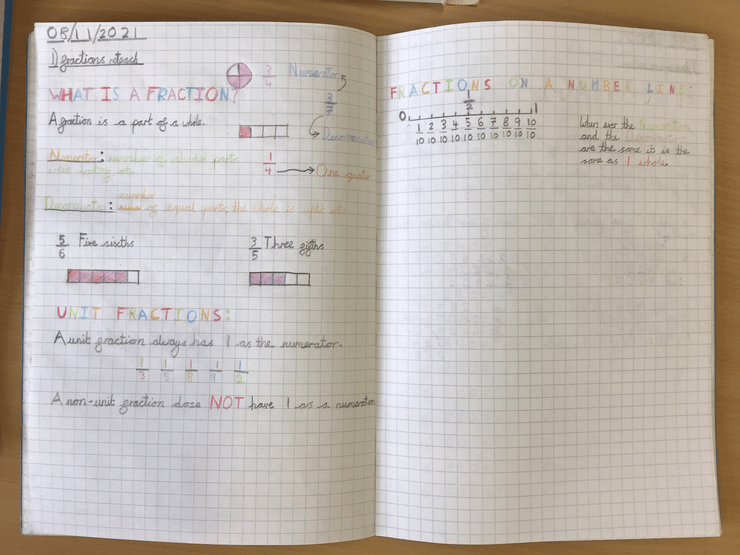 08/11/2021
1) fractions reteach
WHAT IS A FRACTION?
3/4 Numerator
3/7
Denominator
A fraction is a part of a whole.
1/4 → One quarter
Numerator: number of shaded parts
were looking at.
Denominator: number
of equal parts the whole is split into.
5/6 Five sixths
3/5 Three fifths
UNIT FRACTIONS:
A unit fraction always has 1 as the numerator.
1/3 1/5 1/8 1/4 1/2
A non-unit fraction dose NOT have 1 as a numerator.
FRACTIONS ON A NUMBER LINE:
1/2
0 1
1/10 2/10 3/10 4/10 5/10 6/10 7/10 8/10 9/10 10/10
When ever the Numerator
and the Denominator
are the same it is the
same as 1 whole.